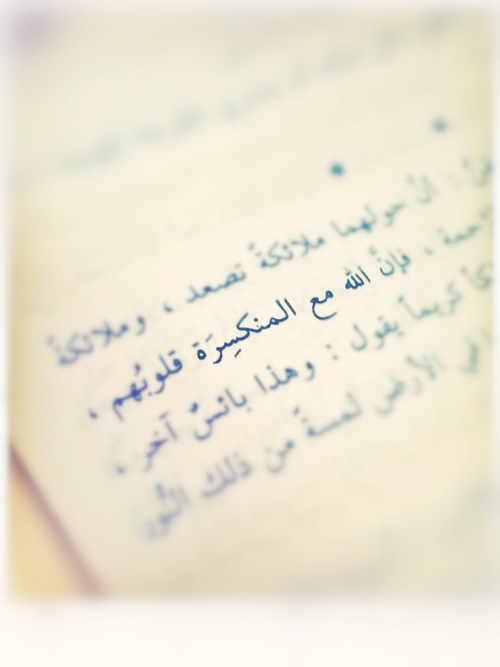 : أنّ حولهما ملائكةً تصعد ، وملائكةً
، فإنّ الله مع المنكسِرَة قلوبُهم ،
كريماً يقول : وهذا بائسٌ آخر ،
الأرض لمسةً من ذلك النُّور